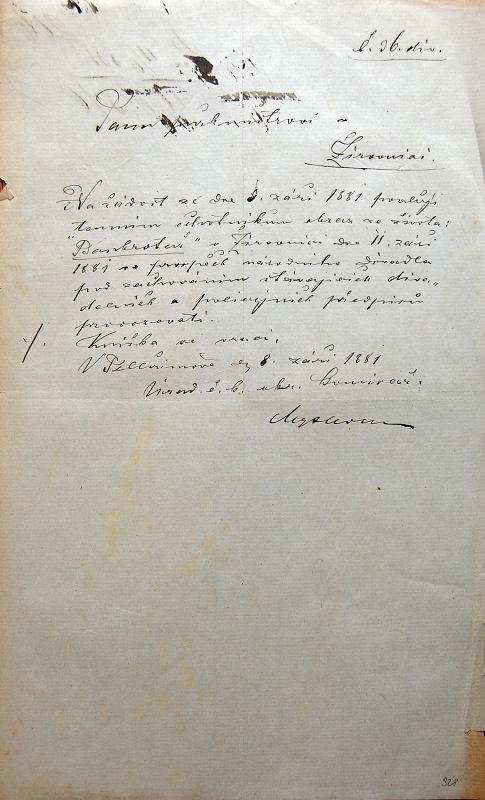 č. 36. div.
Panu purkmistrovi v
Žirovnici.
Na žádost ze dne 5. září 1881 povoluji
tamním ochotníkům obraz ze života:
"Bankrotář" v Žirovnici dne 11. září
1881 ve prospěch národního divadla
pod zachováním stávajících diva-
delních a policejních předpisů
provozovati.
./. Knížka se vrací.
V Pelhřimově dne 8. září 1881
Úřad. c. k. okr. komisař:
328